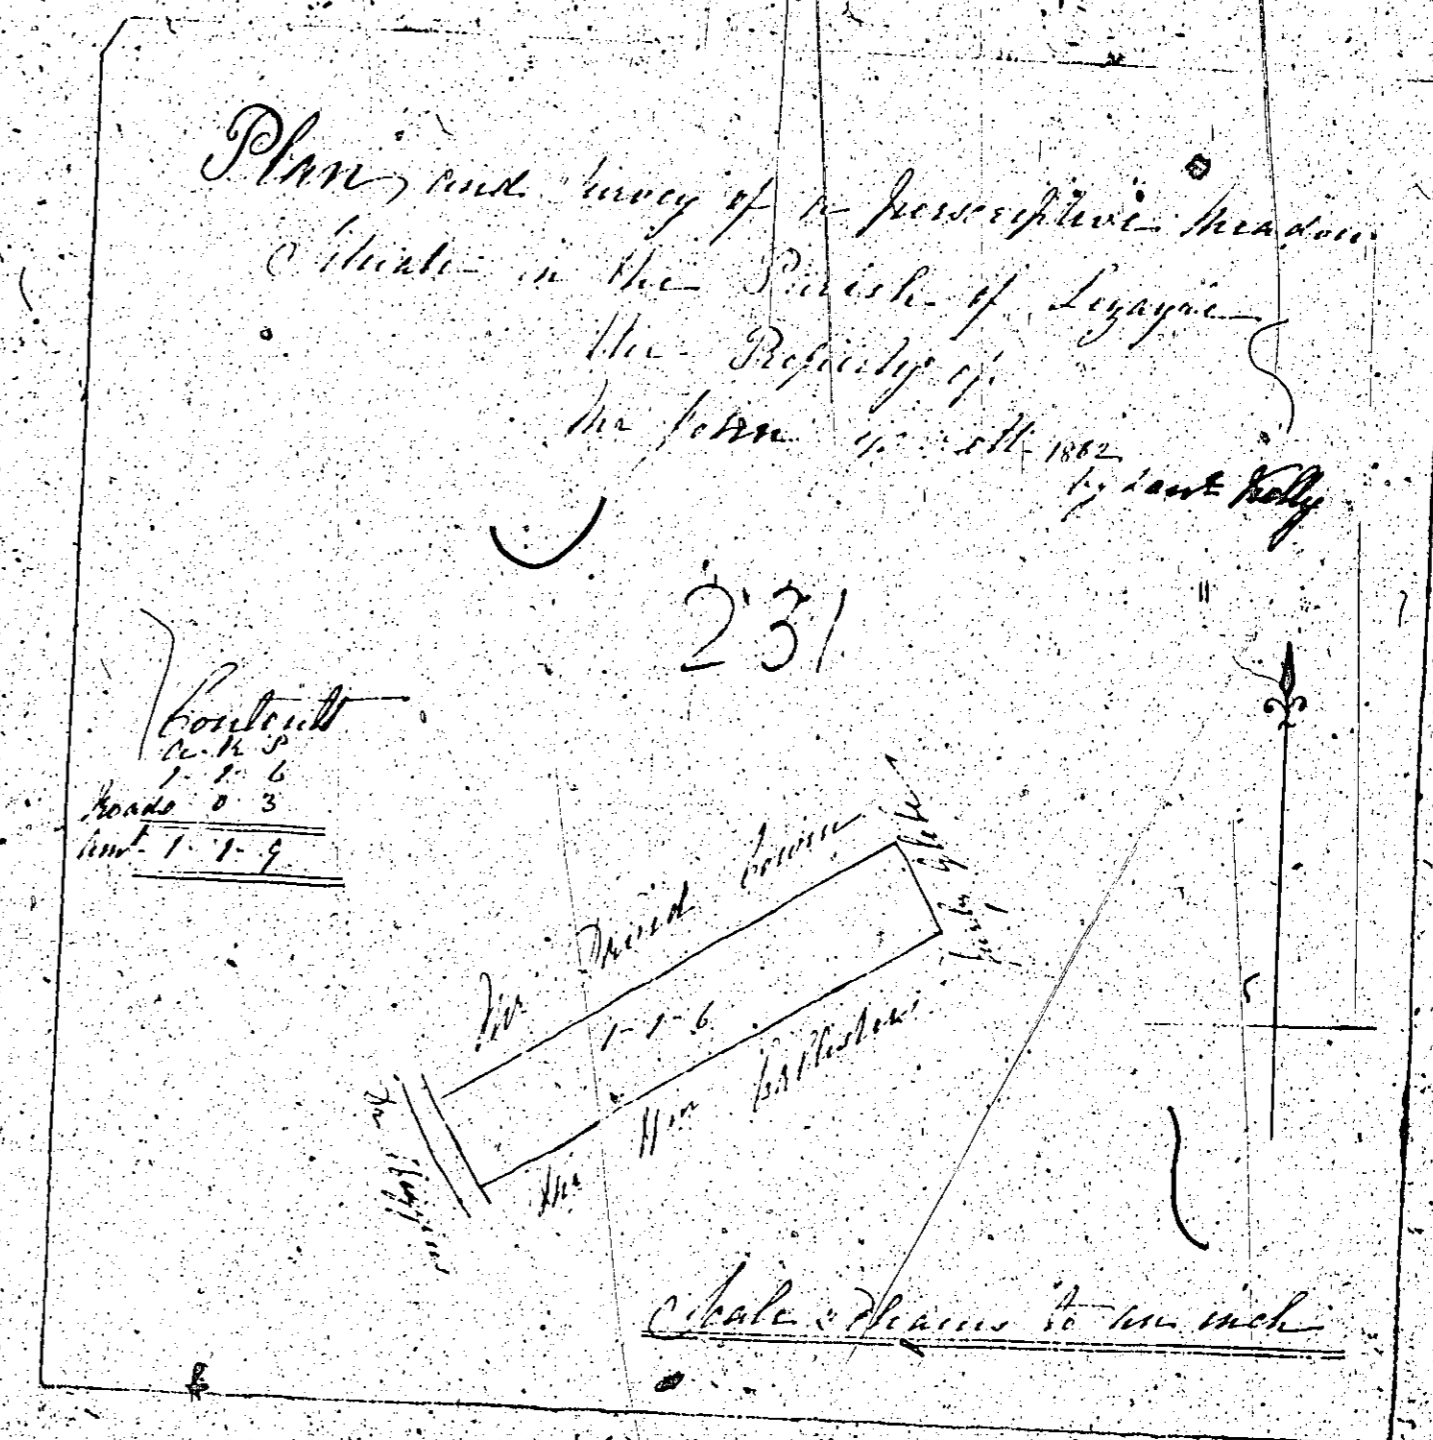 Plan, and Survey of a perscriptive Meadow
Situate in the Parish of Lezayre
the Property of
Mr John 1862
by Lawce Kelly
231
Contents
A R P
1- 1- 6
Roads 0 3
Amt 1- 1- 9
Mr David Cowin
Glebe
1- 1- 6
Mr Wm Callister
Scale 2 Chains to an inch